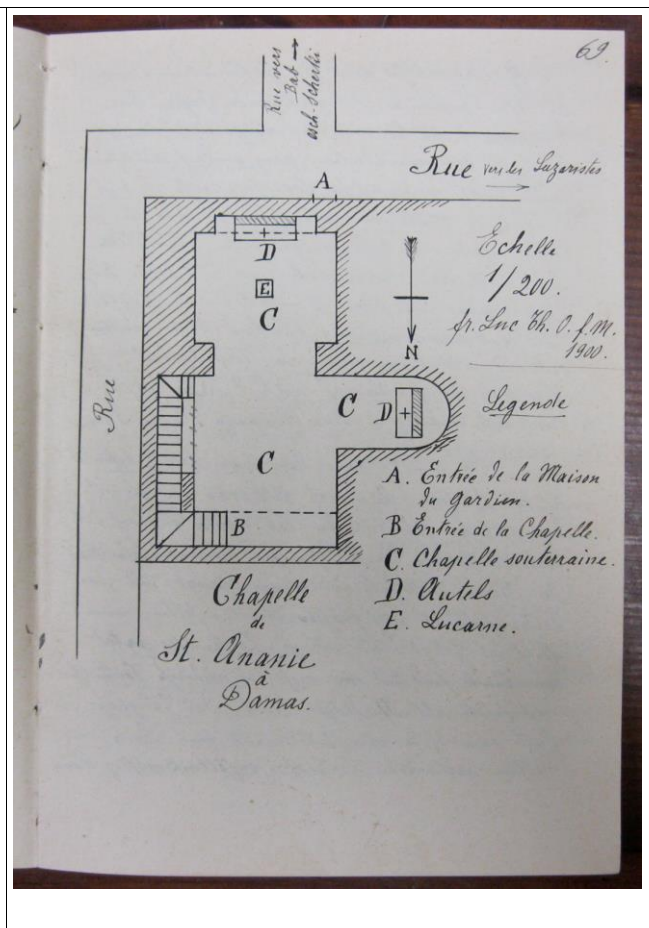 69.
Rue vers
Bab →
esch-Scherki
Rue vers les Lazaristes
A
D
E
C
Echelle
1/200.
fr. Luc Th. O. f. M.
1900.
N
Rue
C
D
C
B
Legende
A. Entrée de la Maison
du gardien.
B Entrée de la Chapelle.
C. Chapelle souterraine.
D. Autels
E. Lucarne.
Chapelle
de
St. Ananie
à
Damas.